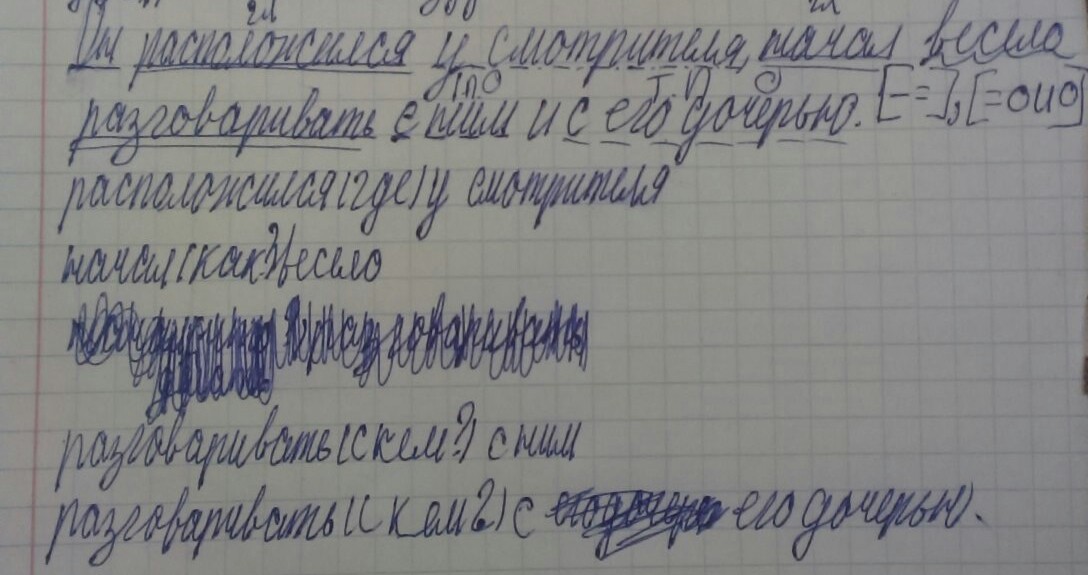 гл гл
Он расположился у смотрителя, начал весело
по Т.П.
разговаривать с ним и с его дочерью. [-=], [=ОиО]
расположился (где) у смотрителя
начал (как?) весело
разговаривать (с кем?) с ним
разговаривать (с кем?) с его дочерью.